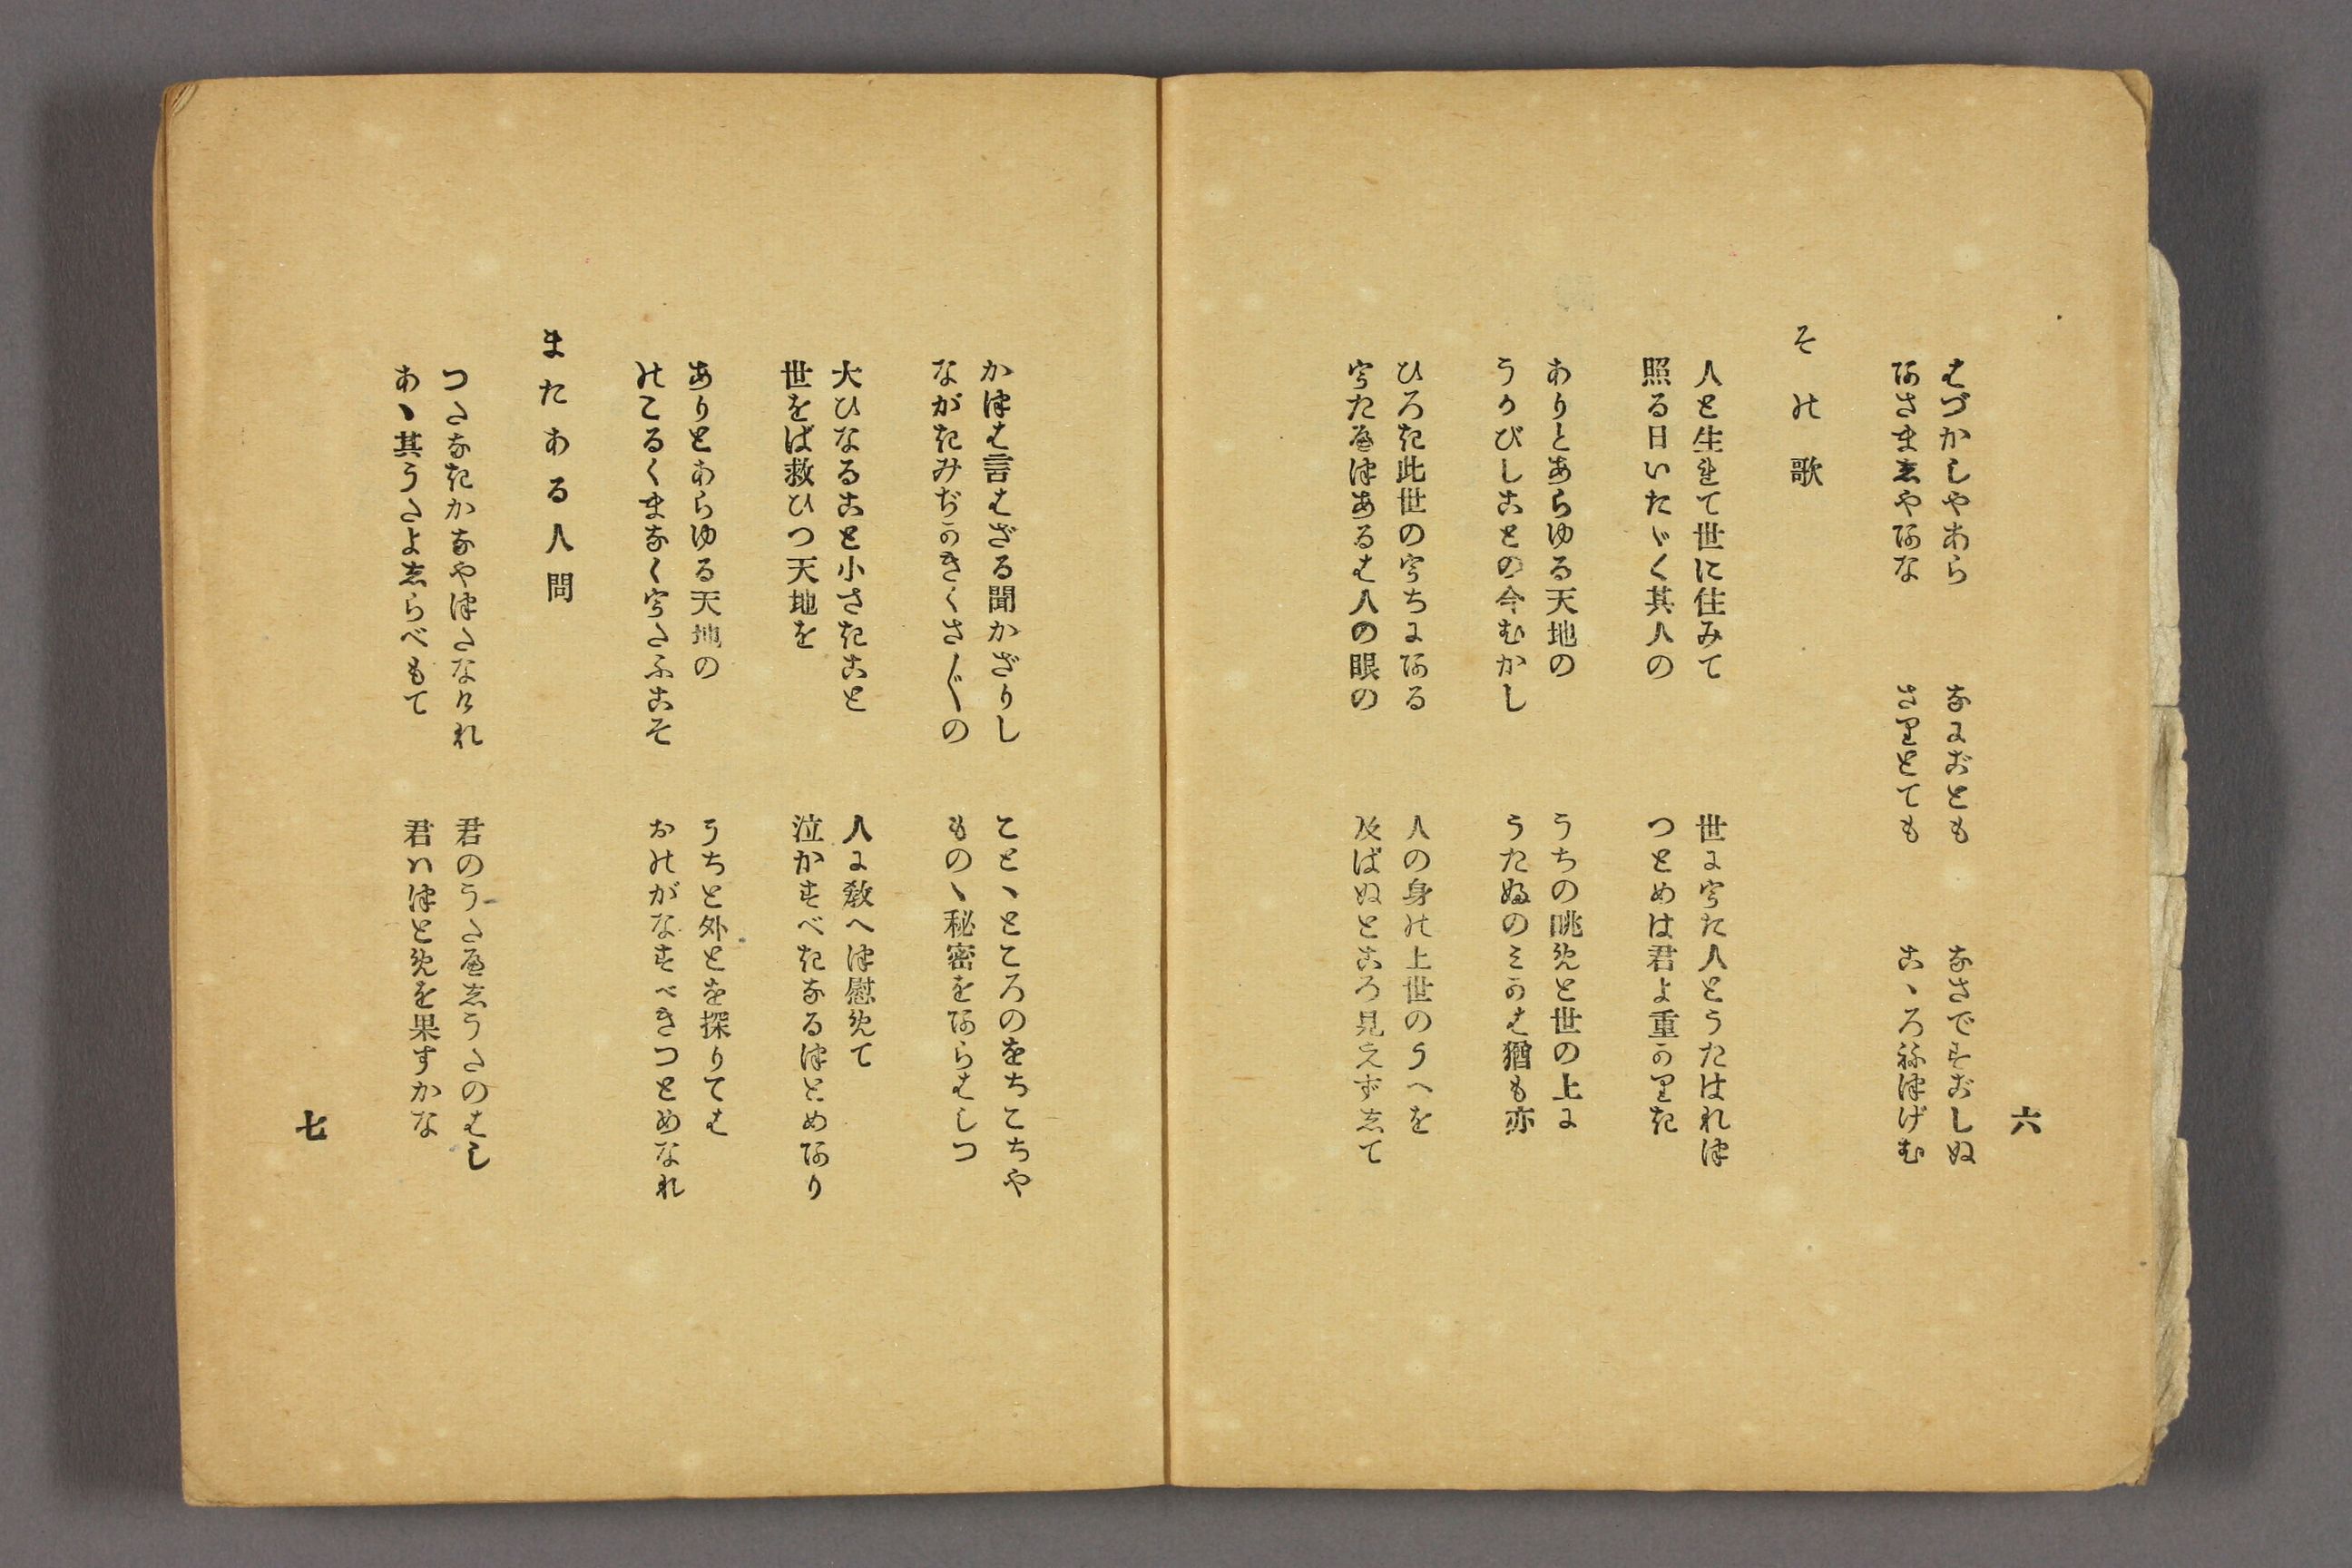 六
はづかしやあら　なにごとも　なさですごしぬ
あさましやあな　さりとても　こゝろねつげむ
その歌
人と生れて世に住みて　世にうた人とうたはれつ
照る日いたゞく其人の　つとめは君よ重かりき
ありとあらゆる天地の　うちの眺めと世の上に
うかびしことの今むかし　うたふのミかは猶も亦
ひろき此世のうちにある　人の身の上世のうへを
うたへつあるは人の眼の　及ばぬところ見えずして
かつは言はざる聞かざりし　ことゝところのをちこちや
ながきみぢかきくさ〴〵の　ものゝ秘密をあらはしつ
大ひなること小さきこと　人に教へつ慰めて
世をば救ひつ天地を　泣かすべきなるつとめあり
ありとあらゆる天地の　うちと外とを探りては
のこるくまなくうたふこそ　おのがなすべきつとめなれ
またある人問
つたなきかなやつたなけれ　君のうたへしうたのはし
あゝ其うたよしらべもて　君ハつとめを果すかな
七